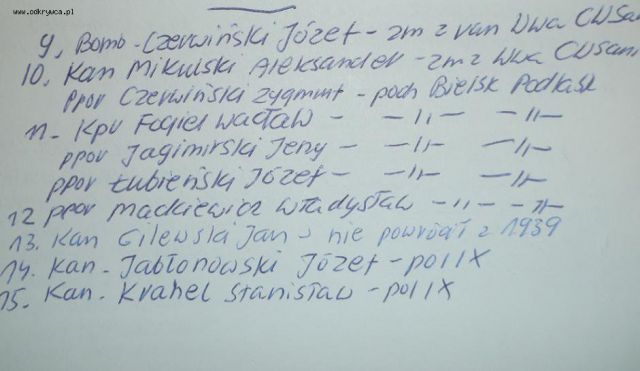 www.odkrywca.pl
9, Bomb - Czerwiński Józef - zm z ran Wwa CWSan
10, Kan Mikulski Aleksander - zm z Wwa CWSani
ppor Czerwiński Zygmunt - poch Bielsk Podlask
11 - Kpr Fogiel Wacław - -"- -"-
ppor Jagimirski Jerzy - -"- -"-
ppor Łubieński Józef - -"- -"-
12 ppor Mackiewicz Władysław - -"- -"-
13. Kan Gilewski Jan - nie powrócił z 1939
14. Kan - Jabłonowski Józef - pol IX
15. Kan. Krahel Stanisław - pol IX